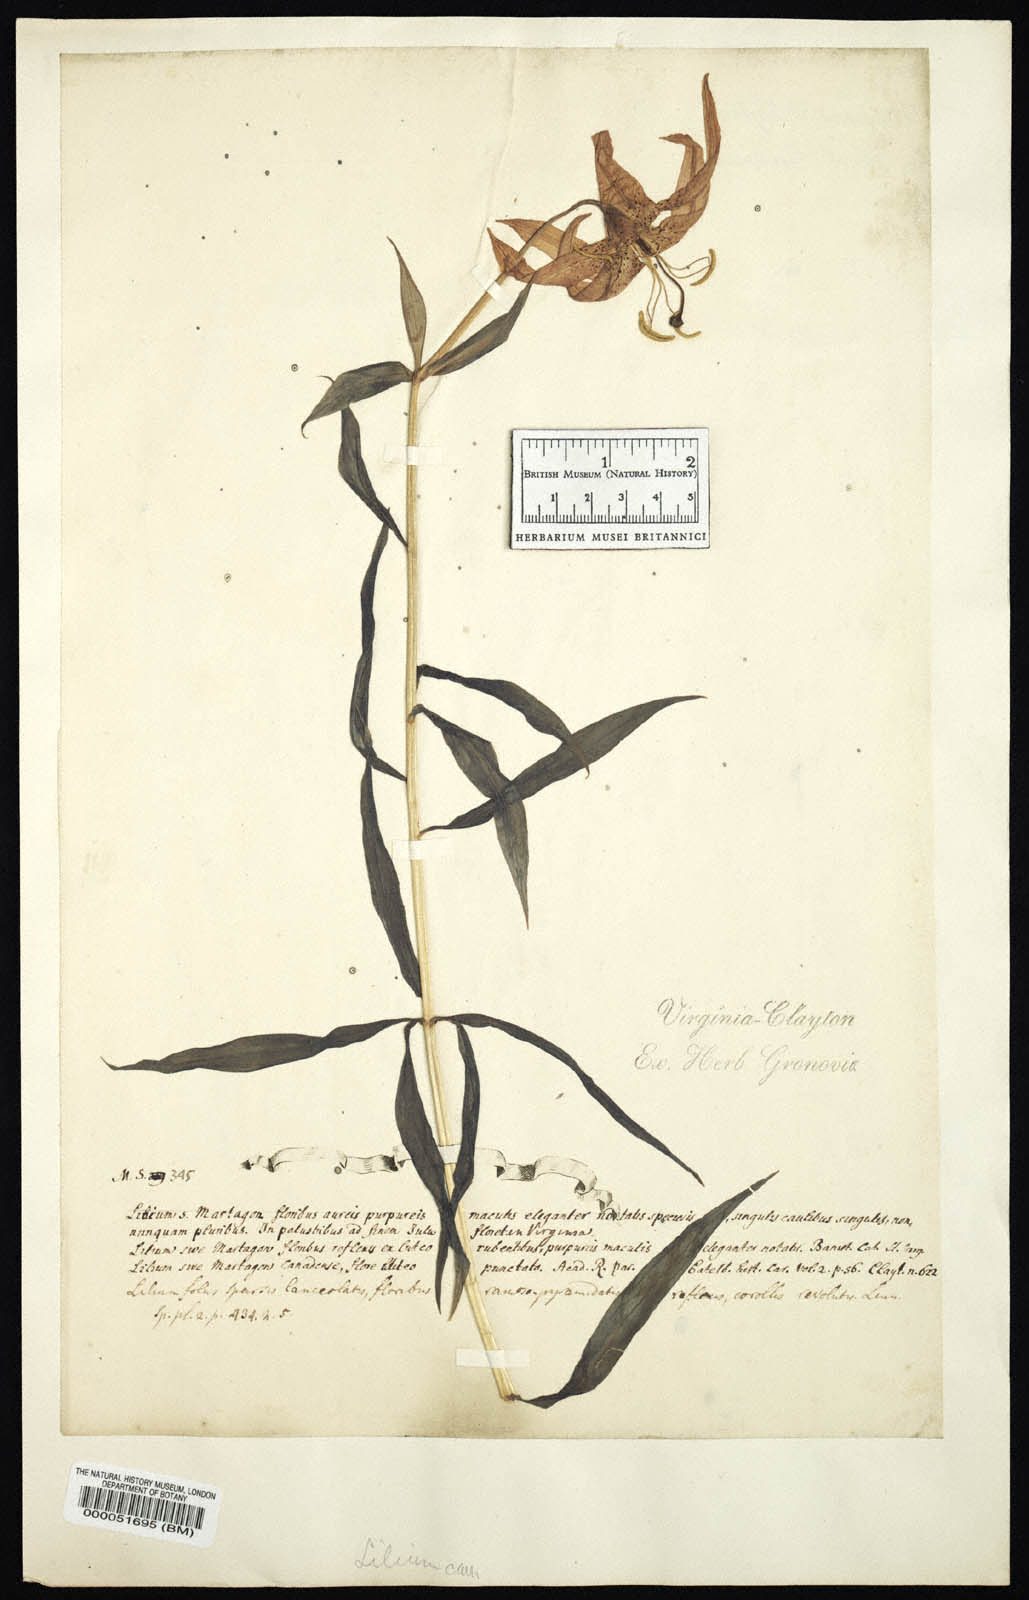 1 2
BRITISH MUSEUM (NATURAL HISTORY)
1 2 3 4 5
HERBARIUM MUSEI BRITANNICI
Virginia-Clayton
Ex. Herb Gronovii
M. S. 345
Lilium s. Martagon floribus aureis purpureis maculis eleganter notatis speciosis, singulis caulibus singulis, non,
nunquam pluribus. In palustribus ad finem Julii floret in Virginia
Lilium sive Martagon floribus reflexis ex luteo rubentibus, purpureis maculis eleganter notatis. Banist. Cat. St. Virg.
Lilium sive Martagon Canadense, flore luteo punctato. Acad. R. par. Catesb. hist. Car. vol. 2. p. 56. Clayt. n. 622
Lilium foliis sparsis lanceolatis, floribus ramoso-pyramidatis reflexis, corollis revolutis. Linn.
Sp. pl. 2. p. 434. n. 5
THE NATURAL HISTORY MUSEUM, LONDON
DEPARTMENT OF BOTANY
000051695 (BM)
Lilium